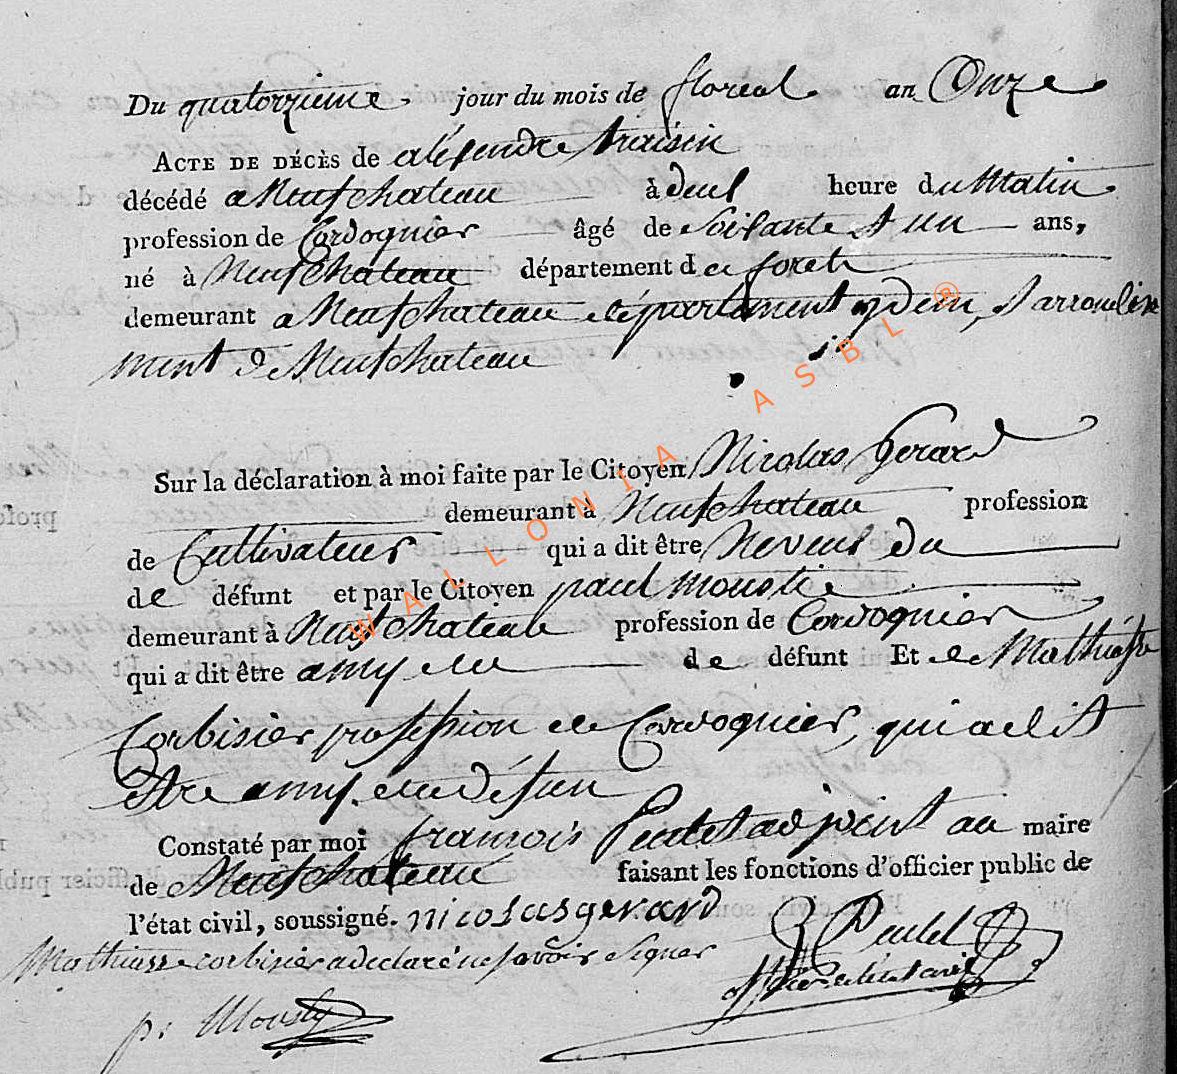 Du quatorzieme jour du mois de floreal an Onze
ACTE DE DÉCÈS de alexendre traisin
décédé a Neufchateau à deux heure du Matin
profession de Cordoguier âgé de soixante et un ans,
né à Neufchateau département de forets
demeurant a Neufchateau département ydem, et arrondisse
ment de Neufchateau
Sur la déclaration à moi faite par le Citoyen Nicolas Gerard
demeurant à Neufchateau profession
de Cultivateur qui a dit être Neveux du
de défunt et par le Citoyen paul moustie
demeurant à Neufchateau profession de Cordoguier
qui a dit être amy du de défunt Et de Mathiasse
Corbisier profession de Cordoguier, qui a dit
Etre amy du défun
Constaté par moi francois adjoint au maire
de Neufchateau faisant les fonctions d'officier public de
l'état civil, soussigné. nicolas gerard
Mathiasse corbisier a declaré ne savoir signer
p: Mousty
WALLONIA ASBL ®